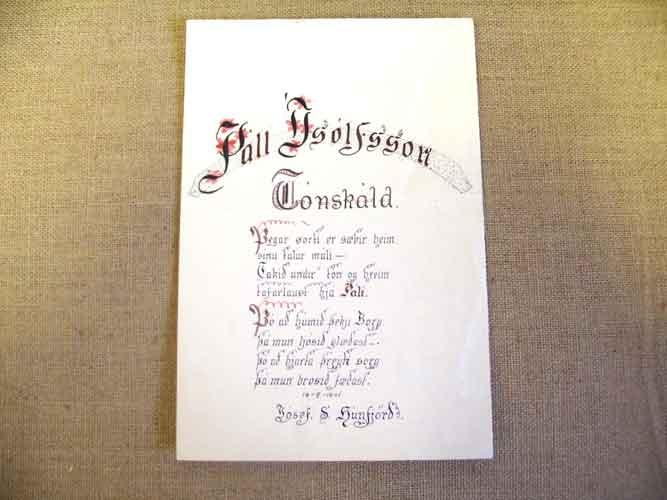 Páll Ísólfsson
Tónskáld.
Þegar sorti er sæbir heim
sínu talar máli —
Takið undir tón og hreim
tafarlaust hjá Páli.
Þó að húmið þekji Borg
þá mun ljósið glæðast —
þó að hjarta þreyti sorg
þá mun brosið fæðast.
Jósef S. Húnfjörð.